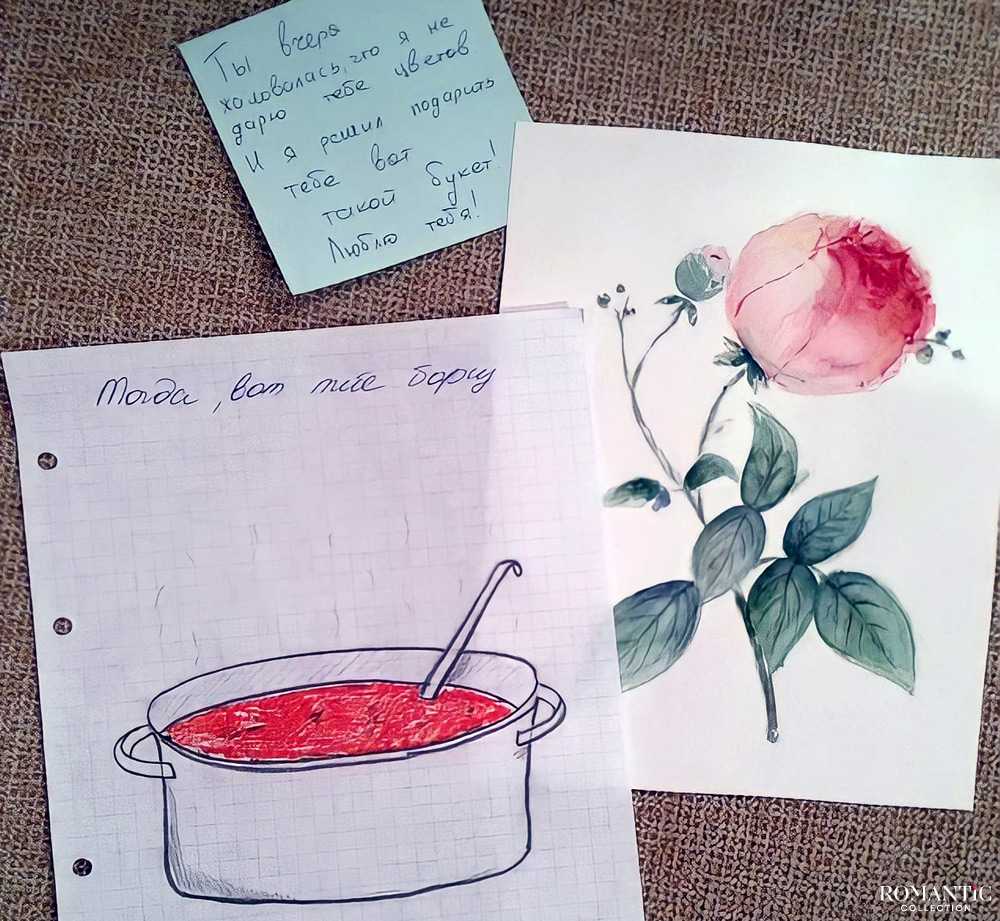 Ты вчера
жаловалась, что я не
дарю тебе цветов
И я решил подарить
тебе вот
такой букет!
Люблю тебя!
Тогда, вот тебе борщ
ROMANTiC
COLLECTION